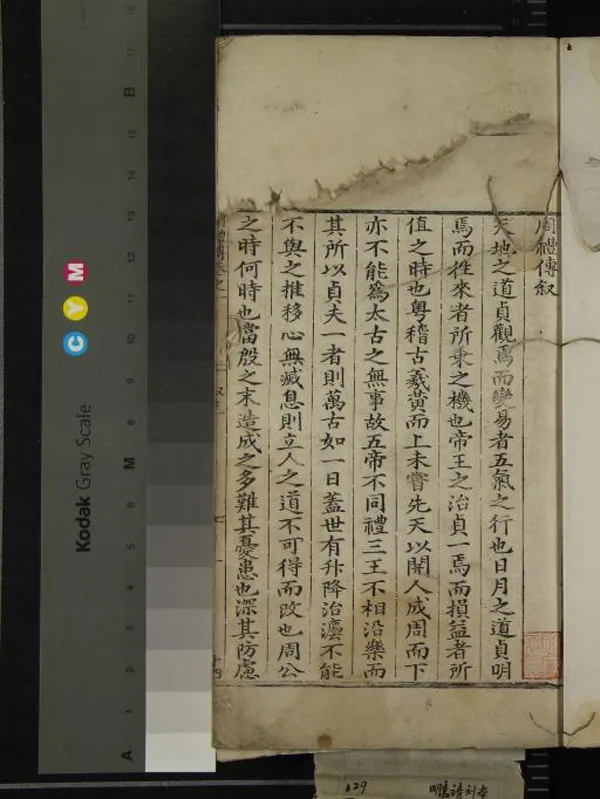 周禮傳叙
天地之道貞觀焉而變易者五氣之行也日月之道貞明
焉而徃來者所乘之機也帝王之治貞一焉而損益者所
值之時也粤稽古羲黄而上未嘗先天以開人成周而下
亦不能爲太古之無事故五帝不同禮三王不相沿樂而
其所以貞夫一者則萬古如一日蓋世有升降治瀍不能
不與之推移心無滅息則立人之道不可得而改也周公
之時何時也當殷之末造成之多難其憂患也深其防慮
Kodak Gray Scale
C Y M
A 1 2 3 4 5 M 6 7 8 9 10 11 12 13 14 15 B 17
129